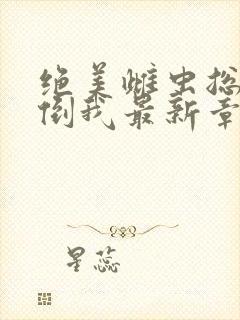 绝美雌虫总
倒我最新章
星蕊